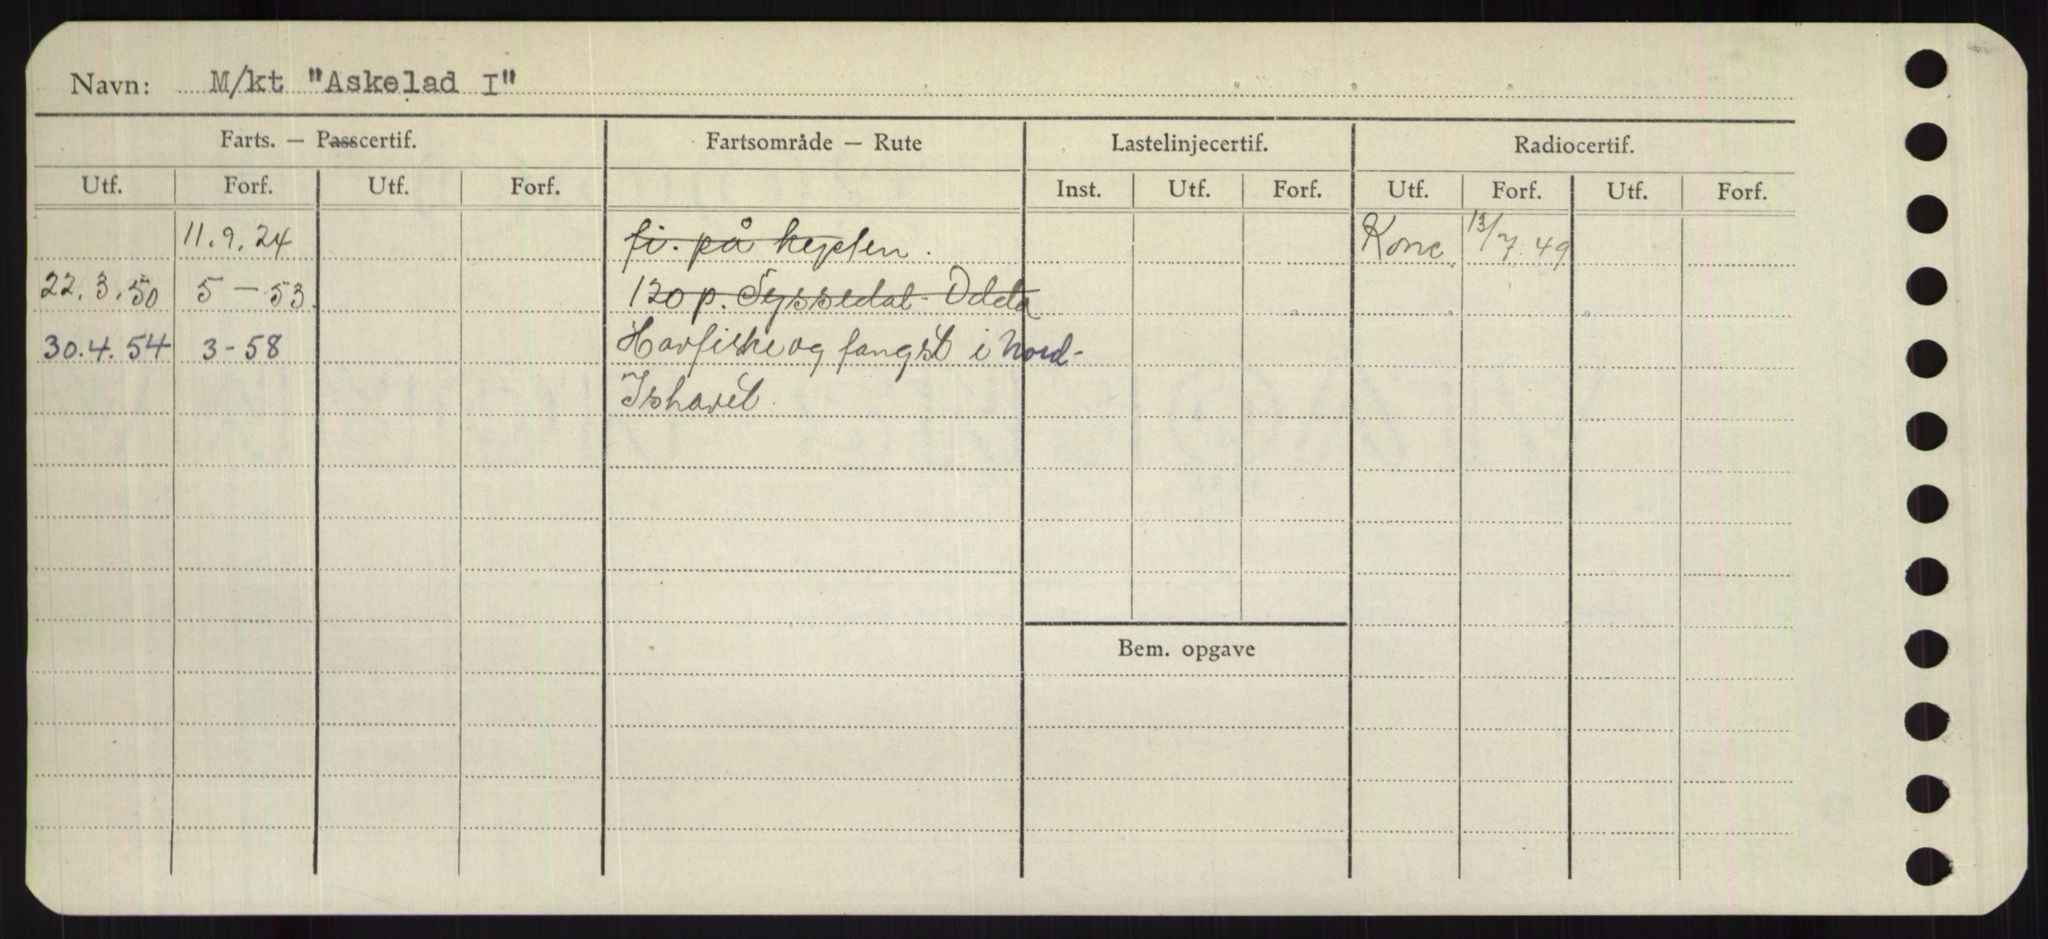 Navn: M/kt "Askelad I"
Farts. — Passcertif. Fartsområde — Rute Lastelinjecertif. Radiocertif.
Utf. Forf. Utf. Forf. Inst. Utf. Forf. Utf. Forf. Utf. Forf.
11.9.24 fi. på kysten. Konc. 13/7.49
22.3.50 5-53. 120 p. Tyssedal-Odda
30.4.54 3-58 Havfiske og fangst i Nord-
Ishavet.
Bem. opgave